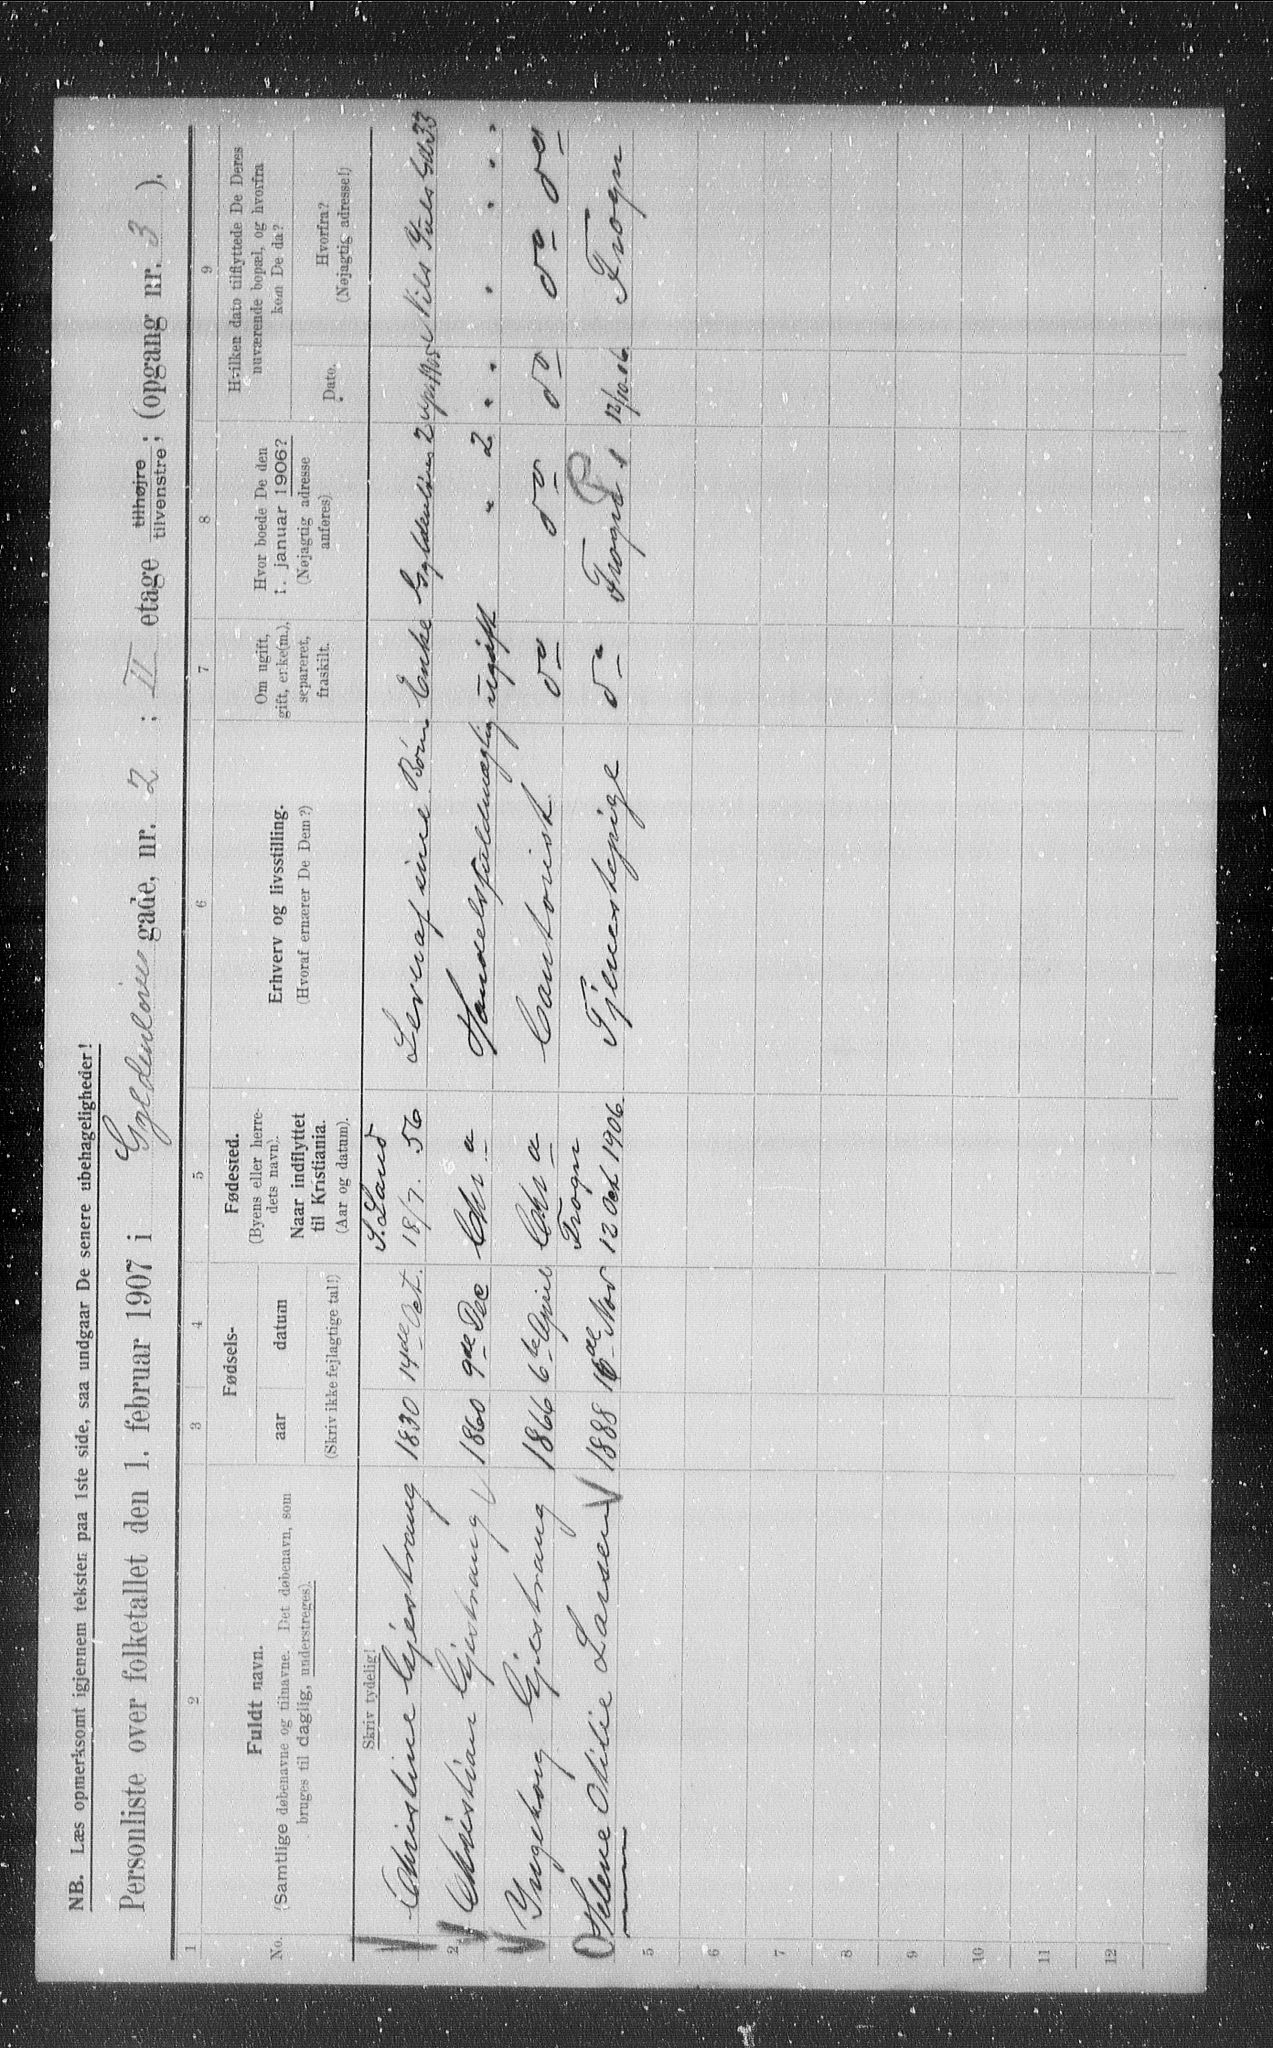 NB. Læs opmerksomt igjennem teksten paa 1ste side, saa undgaar De senere ubehageligheder!
Personliste over folketallet den 1. februar 1907 i Gyldenløves gade, nr. 2 ; II etage tilhøjre tilvenstre; (opgang nr. 3 ).
1 2 3 4 5 6 7 8 9
No.
Fuldt navn.
(Samtlige døbenavne og tilnavne. Det døbenavn, som
bruges til daglig, understreges).
Fødsels-
aar datum
(Skriv ikke fejlagtige tal!)
Fødested.
(Byens eller herre-
dets navn).
Naar indflyttet
til Kristiania.
(Aar og datum).
Erhverv og livsstilling.
(Hvoraf ernærer De Dem?)
Om ugift,
gift, enke(m.),
separeret,
fraskilt.
Hvor boede De den
1. januar 1906?
(Nøjagtig adresse
anføres)
Hvilken dato tilflyttede De Deres
nuværende bopæl, og hvorfra
kom De da?
Dato.
Hvorfra?
(Nøjagtig adresse!)
Skriv tydelig!
S. Land
Christine Gjestrang 1830 14de Oct. 18/7. 56 Lever af sine Børn Enke Gyldenløves 2 Nils Juels Gd 33
2 Christian Gjestrang 1860 9de Dec Chr a Handelsfuldmægtig ugift " 2 " " " " " "
Ingeborg Gjestrang 1866 6te April Chr a Contorist do do do do do
Frogn
Helene Otilie Larsen 1888 Nov 12 Oct 1906 Tjenestepige do Frogn 12/10.06 Frogn
5
6
7
8
9
10
11
12